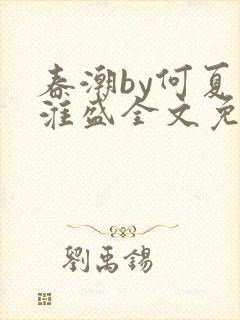 春潮by何夏
淮盛全文免
劉禹錫